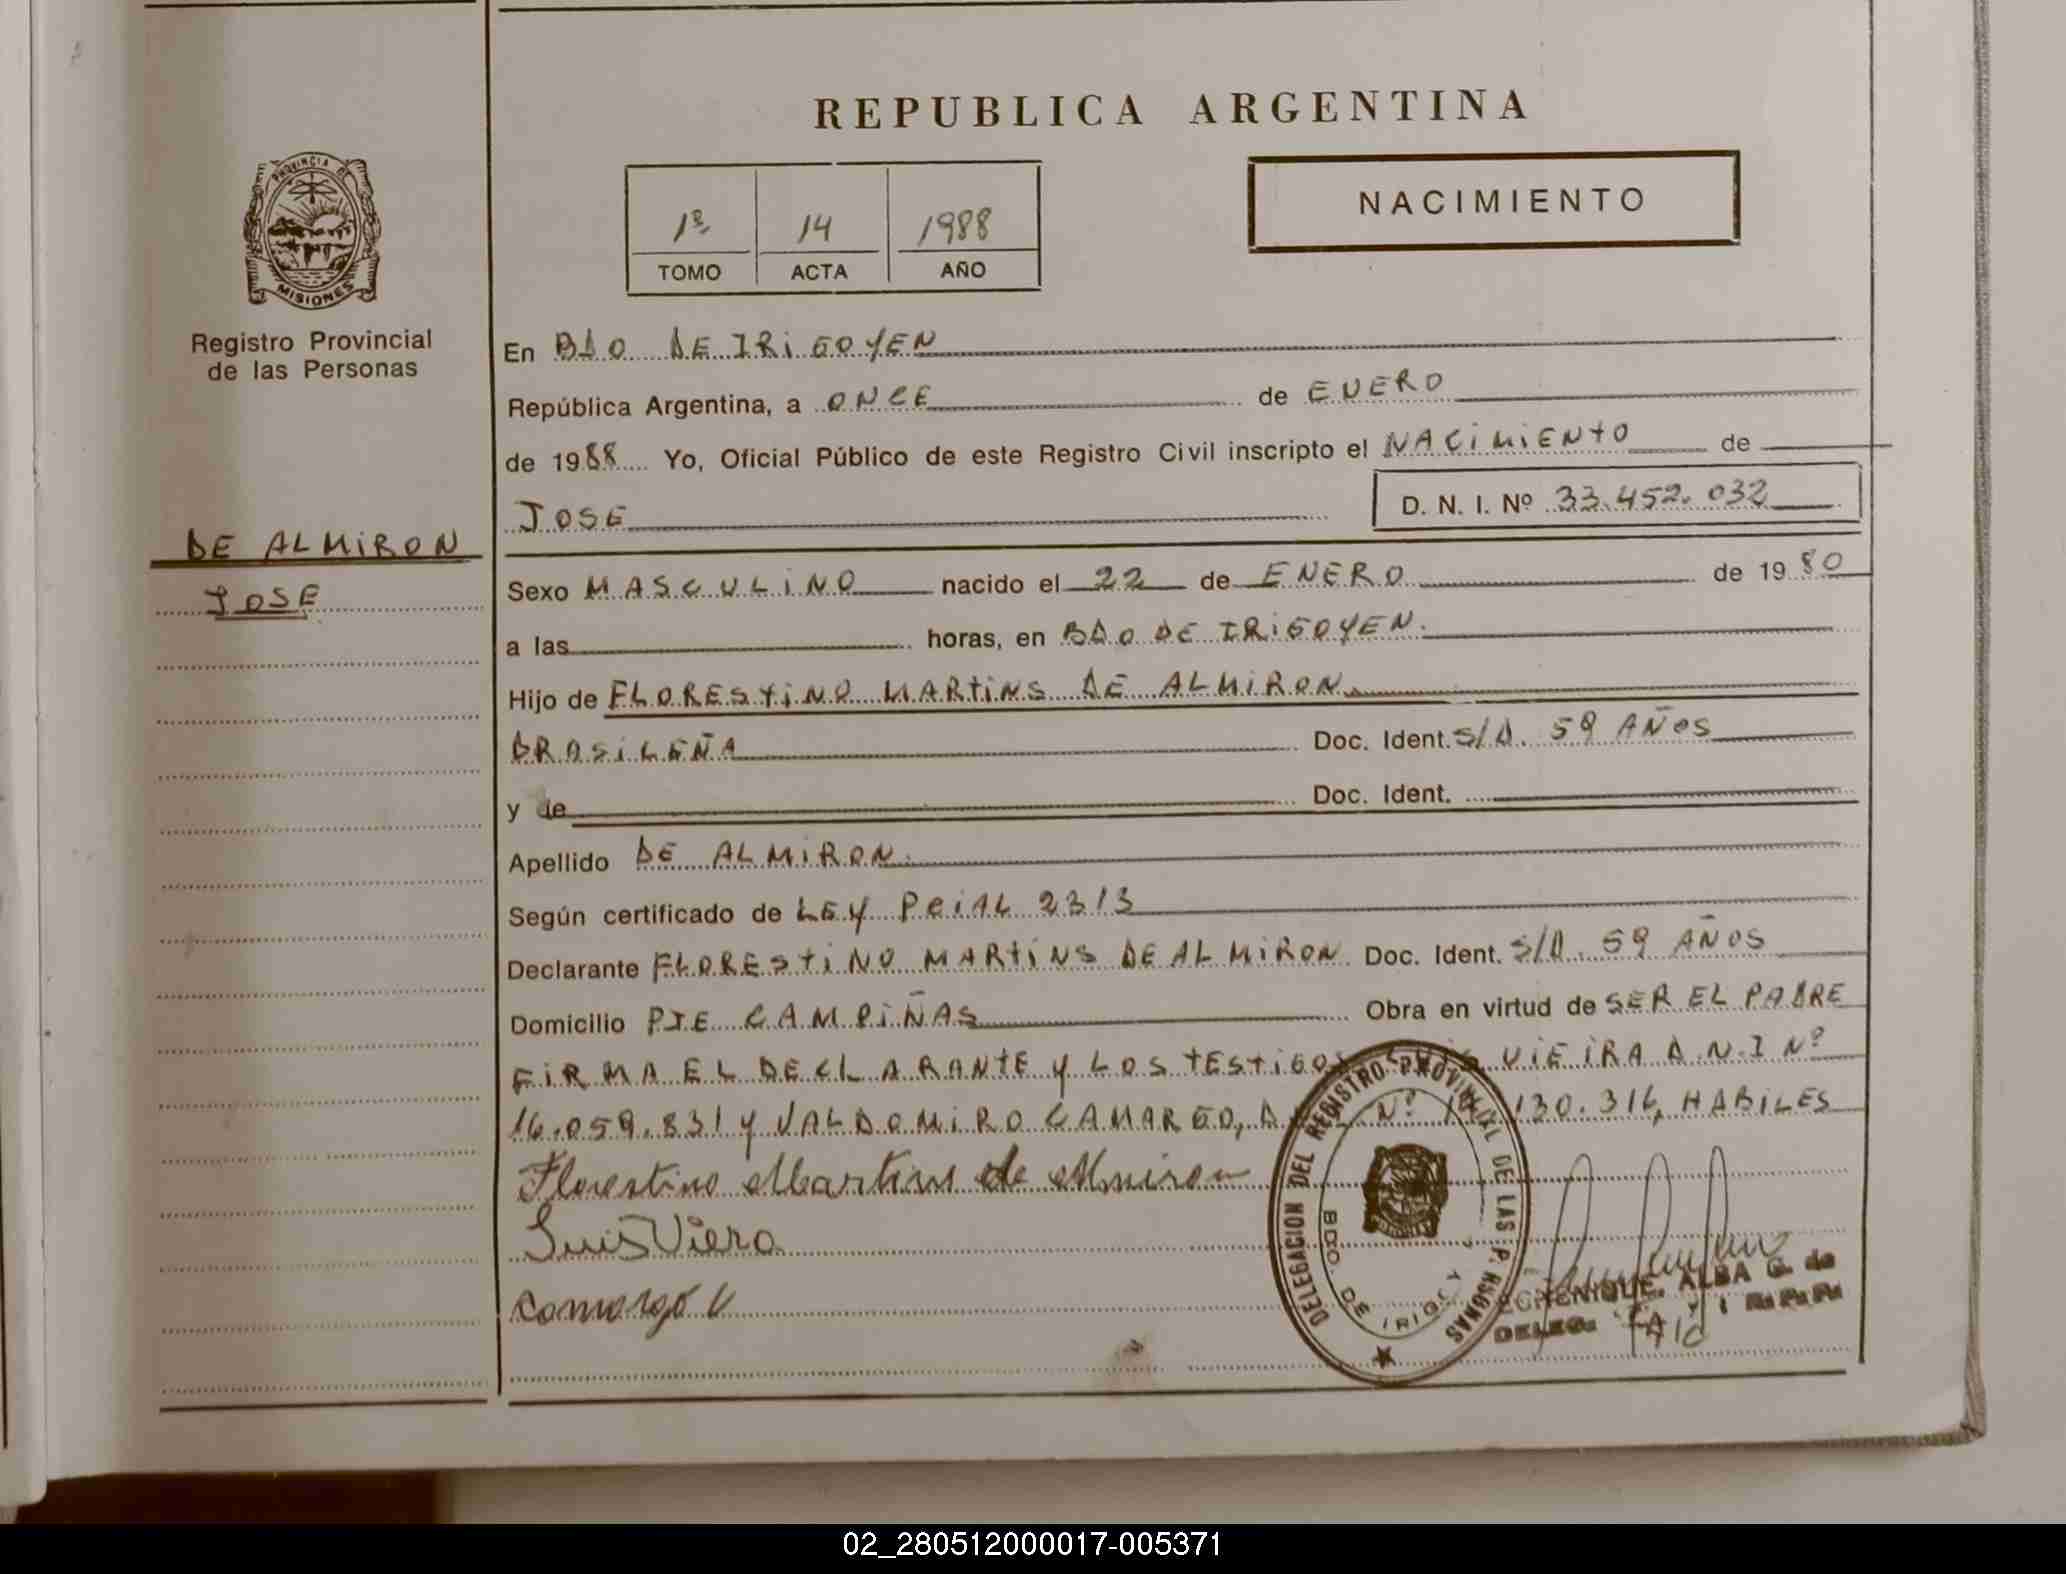 REPUBLICA ARGENTINA
PROVINCIA DE
MISIONES
Registro Provincial
de las Personas
1º 14 1988
TOMO ACTA AÑO
NACIMIENTO
En BDO DE IRIGOYEN
República Argentina, a ONCE de ENERO
de 1988 Yo, Oficial Público de este Registro Civil inscripto el NACIMIENTO de
JOSE D. N. I. Nº 33.452.032
DE ALMIRON
JOSE
Sexo MASCULINO nacido el 22 de ENERO de 1980
a las horas, en BDO DE IRIGOYEN.
Hijo de FLORESTINO MARTINS DE ALMIRON
BRASILEÑA Doc. Ident. S/D. 59 AÑOS
y de Doc. Ident.
Apellido DE ALMIRON.
Según certificado de LEY PCIAL 2313
Declarante FLORESTINO MARTINS DE ALMIRON Doc. Ident. S/D. 59 AÑOS
Domicilio PJE CAMPIÑAS Obra en virtud de SER EL PADRE
FIRMA EL DECLARANTE Y LOS TESTIGOS VIEIRA D.N.I Nº
16.059.831 Y VALDOMIRO CAMARGO, D Nº 130.316, HABILES
Florestino Martins de Almiron
Luis Viera
Camargo V
DELEGACION DEL REGISTRO PROVINCIAL DE LAS PERSONAS
BDO. DE IRIGOY
ALBA G. de
DELEG.
02_280512000017-005371